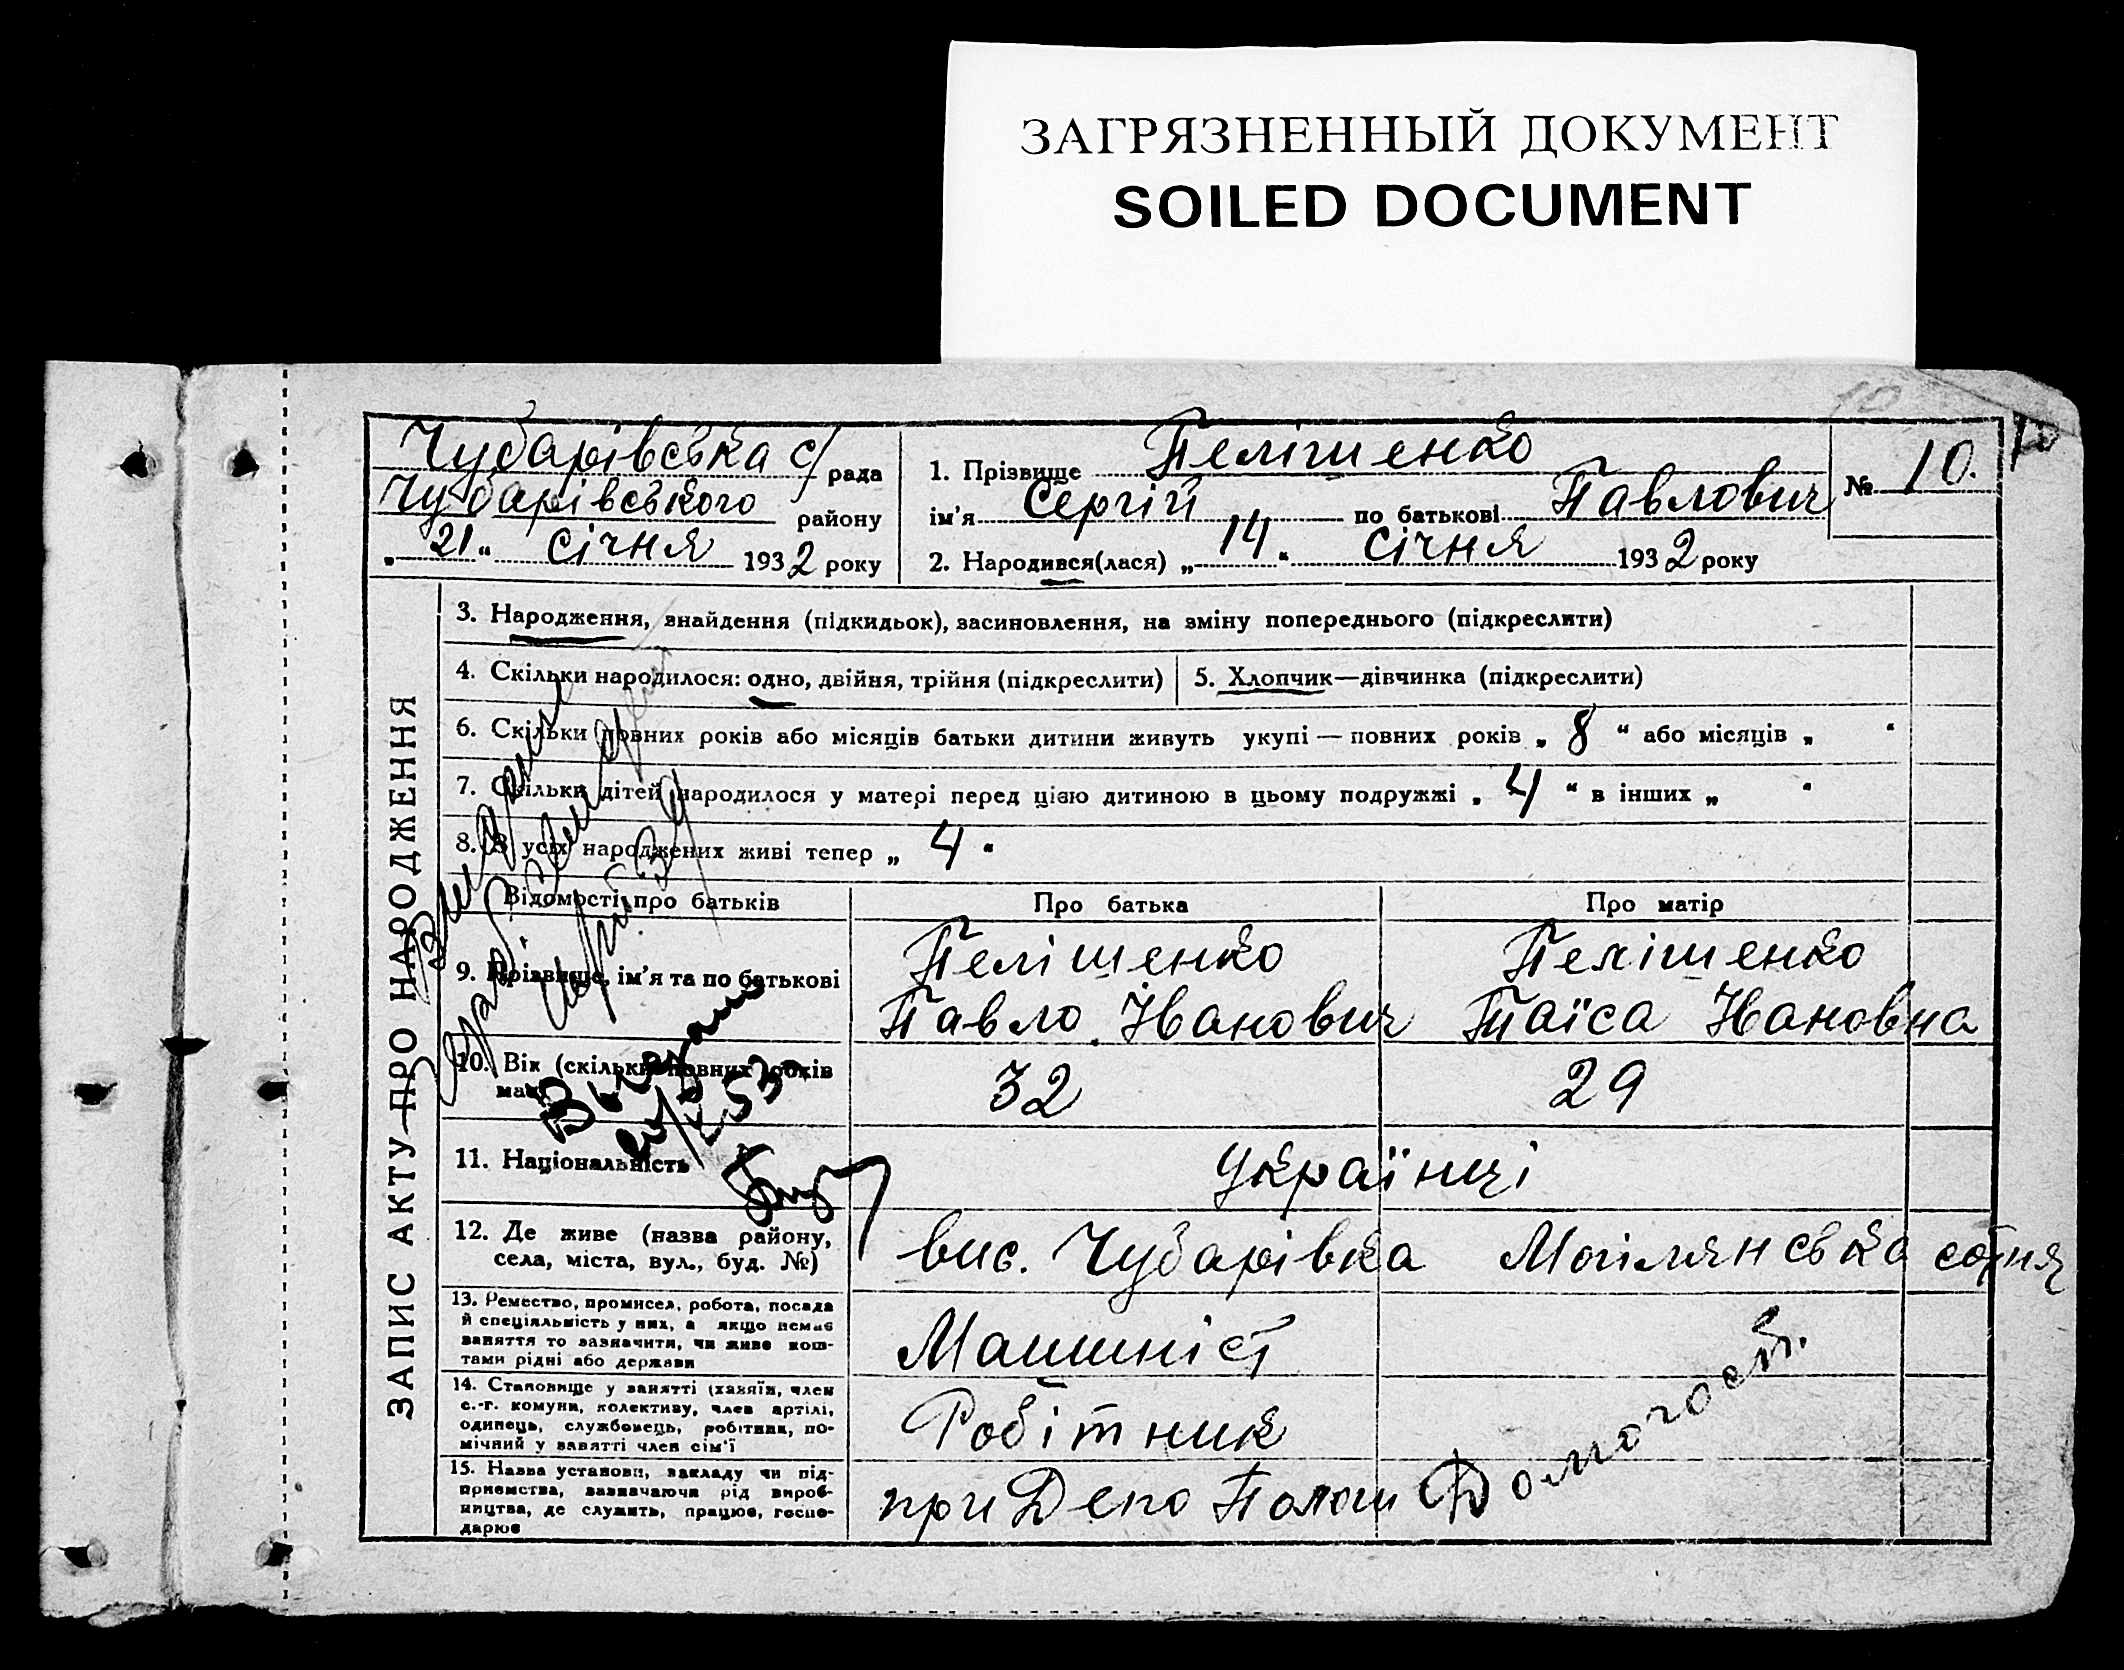 ЗАГРЯЗНЕННЫЙ ДОКУМЕНТ
SOILED DOCUMENT
10
Чубарівська с/рада
Чубарівського району
„ 21 “ січня 1932 року
1. Прізвище Пелішенко
ім'я Сергій по батькові Павлович
№ 10.
2. Народився(лася) „ 14 “ січня 1932 року
ЗАПИС АКТУ ПРО НАРОДЖЕННЯ
3. Народження, знайдення (підкидьок), засиновлення, на зміну попереднього (підкреслити)
4. Скільки народилося: одно, двійня, трійня (підкреслити)
5. Хлопчик—дівчинка (підкреслити)
6. Скільки повних років або місяців батьки дитини живуть укупі — повних років „ 8 “ або місяців „ “
7. Скільки дітей народилося у матері перед цією дитиною в цьому подружжі „ 4 “ в інших „ “
8. З усіх народжених живі тепер „ 4 “
Відомості про батьків
Про батька
Про матір
9. Прізвище, ім'я та по батькові
Пелішенко
Павло Іванович
Пелішенко
Таїса Івановна
10. Вік (скільки повних років має)
32
29
11. Національність
Українці
12. Де живе (назва району,
села, міста, вул., буд. №)
вис. Чубарівка Могілянська сотня
13. Ремество, промисел, робота, посада
й спеціяльність у них, а якщо немає
заняття то зазначити, чи живе кош-
тами рідні або держави
Машиніст
14. Становище у занятті (хазяїн, член
с.-г. комуни, колективу, член артілі,
одинець, службовець, робітник, по-
мічний у занятті член сім'ї
Робітник
15. Назва установи, закладу чи під-
приємства, зазначаючи рід вироб-
ництва, де служить, працює, госпо-
дарює
при Депо Пологи
Домогосп.